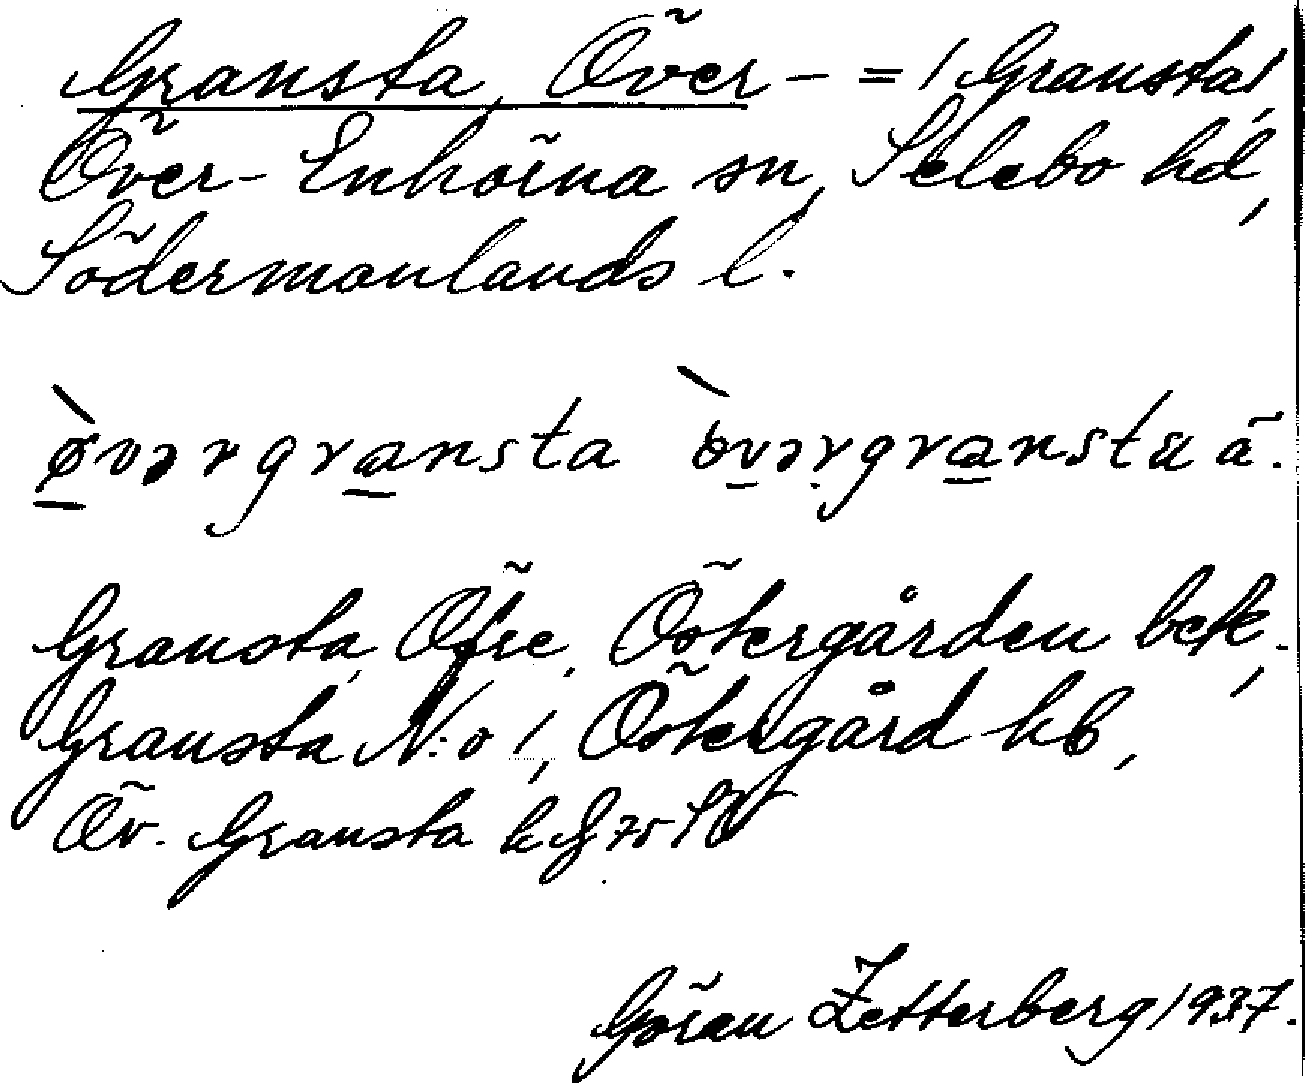 Gransta, Över- = 1 Gransta 1,
Över-Enhörna sn, Selebo hd,
Södermanlands l.
ø̀vərgransta òvərgransta ä.
Gransta, Öfre, Östergården bek,
Gransta N:o 1, Östergård kb,
Öv. Gransta k
Göran Zetterberg 1937.